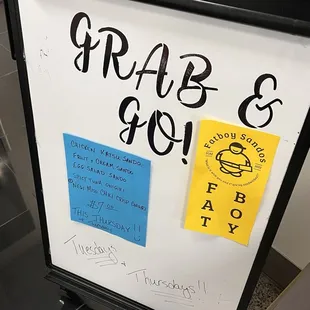 GRAB &
GO!
CHICKEN KATSU SANDO
FRUIT & CREAM SANDO
EGG SALAD SANDO
SPICY TUNA
THIS THURSDAY
Fatboy Sandos
FAT
BOY
Tuesdays &
Thursdays!!